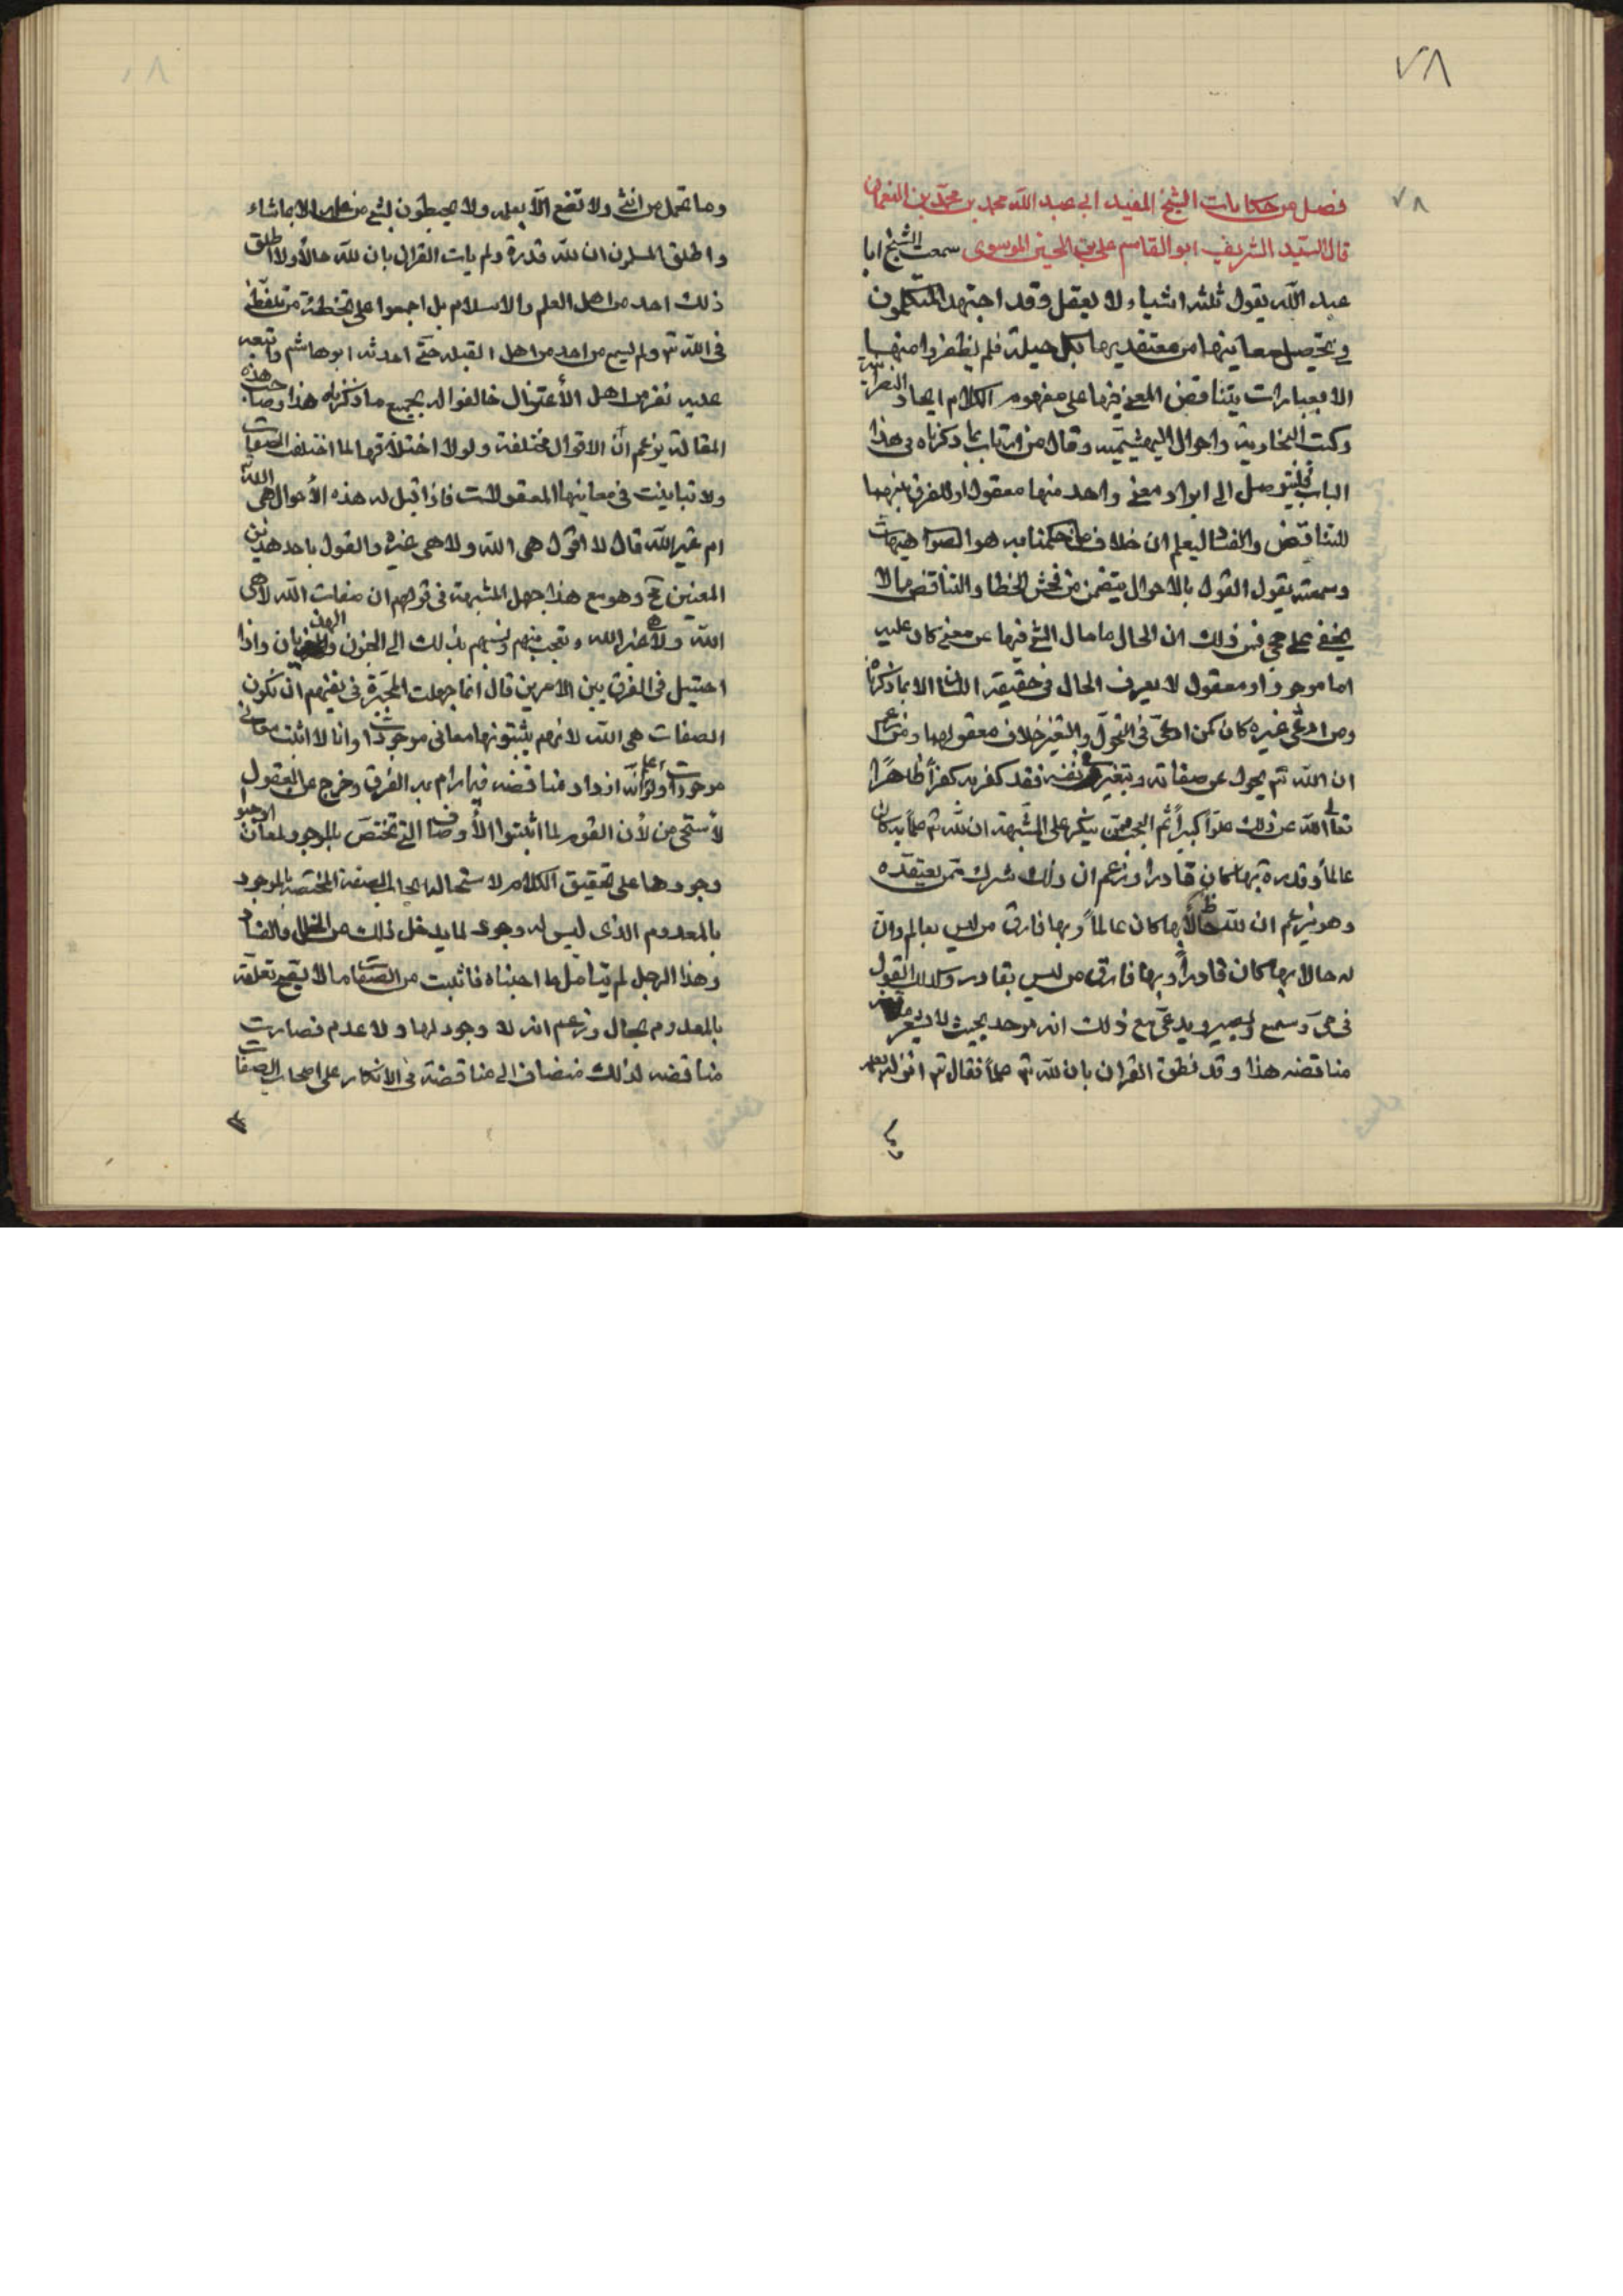 ٧٨
٧٨
فصل من حكايات الشيخ المفيد ابى عبد الله محمد بن محمد بن النعمان
قال السيد الشريف ابو القاسم على بن الحسين الموسوى سمعت الشيخ ابا
عبد الله يقول ثلثه اشياء لا يعقل وقد اجتهد المتكلمون
فى تحصيل معانيها من معتقديها بكل حيلة فلم يظفروا منهم
الا بعبارات يتناقض المعنى فيها على مفهوم الكلام اتحاد النصرانية
وكسب النجارية واحوال البهشمية وقال من ارتاب بما ذكرناه فى هذا
الباب فليتوصل الى ايراد معنى واحد منها معقول او الفرق بينهما
للتناقض والفساد ليعلم ان خلاف ما حكمنا به هو الصواب هيهات
وسمعته يقول القول بالاحوال يتضمن من فحش الخطا والتناقض ما لا
يخفى على حجى فمن ذلك ان الحال ما حال الشئ فيها عن معنى كان عليه
اما موجود او معقول لا يعرف الحال فى حقيقة اللسان الا بما ذكرناه
ومن ادعى غيره كان كمن ادعى فى التحول والتغير خلاف معقولها ومن زعم
ان الله تم يحول عن صفاته ويتغير فى نفسه فقد كفر به كفراً ظاهراً
تعالى الله عن ذلك علواً كبيراً ثم العجب ممن ينكر على المشبهة ان لله تم علماً به كان
عالماً وقدرة بها كان قادرا وزعم ان ذلك شرك ممن يعتقده
وهو يزعم ان لله حالاً بها كان عالماً وبها فارق من ليس بعالم وان
له حالا بها كان قادراً وبها فارق من ليس بقادر وكذلك القول
فى حى وسميع وبصير ويدعى مع ذلك انه موحد بحيث لا يشعر
مناقضه هذا وقد نطق القران بان لله تم علماً فقال تم انزله بعلمه
وما تحمل من انثى ولا تضع الا بعلمه ولا يحيطون بشئ من علمه الا بما شاء
واطلق المسلمون ان لله قدرة ولم يات القران بان لله حالاً ولا اطلق
ذلك احد من اهل العلم والاسلام بل اجمعوا على تخطئة من تلفظ
فى الله تم ولم يسمع من احد من اهل القبله حتى احدثه ابو هاشم واتبعه
عليه نفر من اهل الأعتزال خالفوا له بجميع ما ذكرناه هذا وصاحب هذه
المقالة يزعم ان الاقوال مختلفة ولولا اختلافها لما اختلف الصفات
ولا تباينت فى معانيها المعقولات فاذا قيل له هذه الأحوال هى الله
ام غير الله قال لا اقول هى الله ولا هى غيره والقول باحد هذين
المعنين مح وهو مع هذا جهل المشبهة فى قولهم ان صفات الله لا هى
الله ولا هى غير الله وتعجب منهم ونسبهم بذلك الى الجنون والهذيان واذا
احتيل فى الفرق بين الامرين قال انما جهلت المجبرة فى نفيهم ان تكون
الصفات هى الله لانهم يثبتونها معانى موجودات وانا لا اثبت معانى
موجودات ولو انه ازداد مناقضه فيما رام به الفرق وخرج عن المعقول
لأستحى من لأن القوم لما اثبتوا الأوصاف التى تختص بالموجود لمعان اوجبوا
وجودها على تحقيق الكلام لاستحاله ايجاب الصفة المختصه بالموجود
بالمعدوم الذى ليس له وجود لما يدخل ذلك من الخلل والفساد
وهذا الرجل لم يتامل ما اجتباه فاثبت من الصفات ما لا يصح تعلقه
بالمعدوم بحال وزعم انه لا وجود لها ولا عدم فصارت
مناقضه لذلك منضاف الى مناقضته فى الانكار على اصحاب الصفات